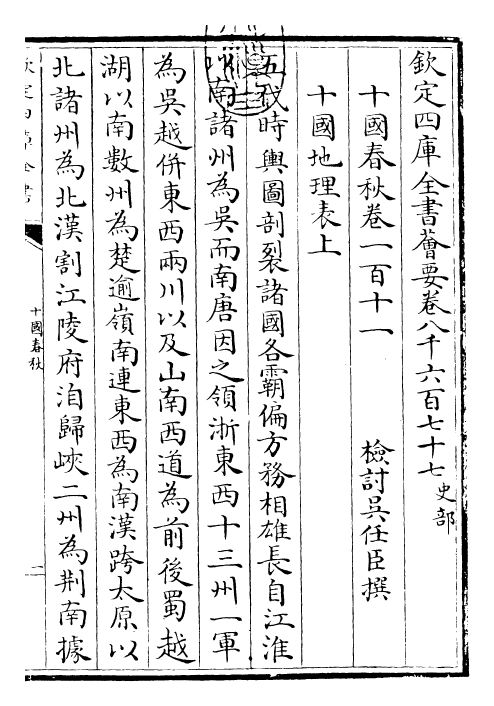 欽定四庫全書薈要卷八千六百七十七史部
十國春秋卷一百十一
檢討吳任臣撰
十國地理表上
五代時輿圖剖裂諸國各霸偏方務相雄長自江淮
以南諸州為吳而南唐因之領浙東西十三州一軍
為吳越併東西兩川以及山南西道為前後蜀越
湖以南數州為楚逾嶺南連東西為南漢跨太原以
北諸州為北漢割江陵府洎歸峽二州為荆南據
欽定四庫全書
十國春秋